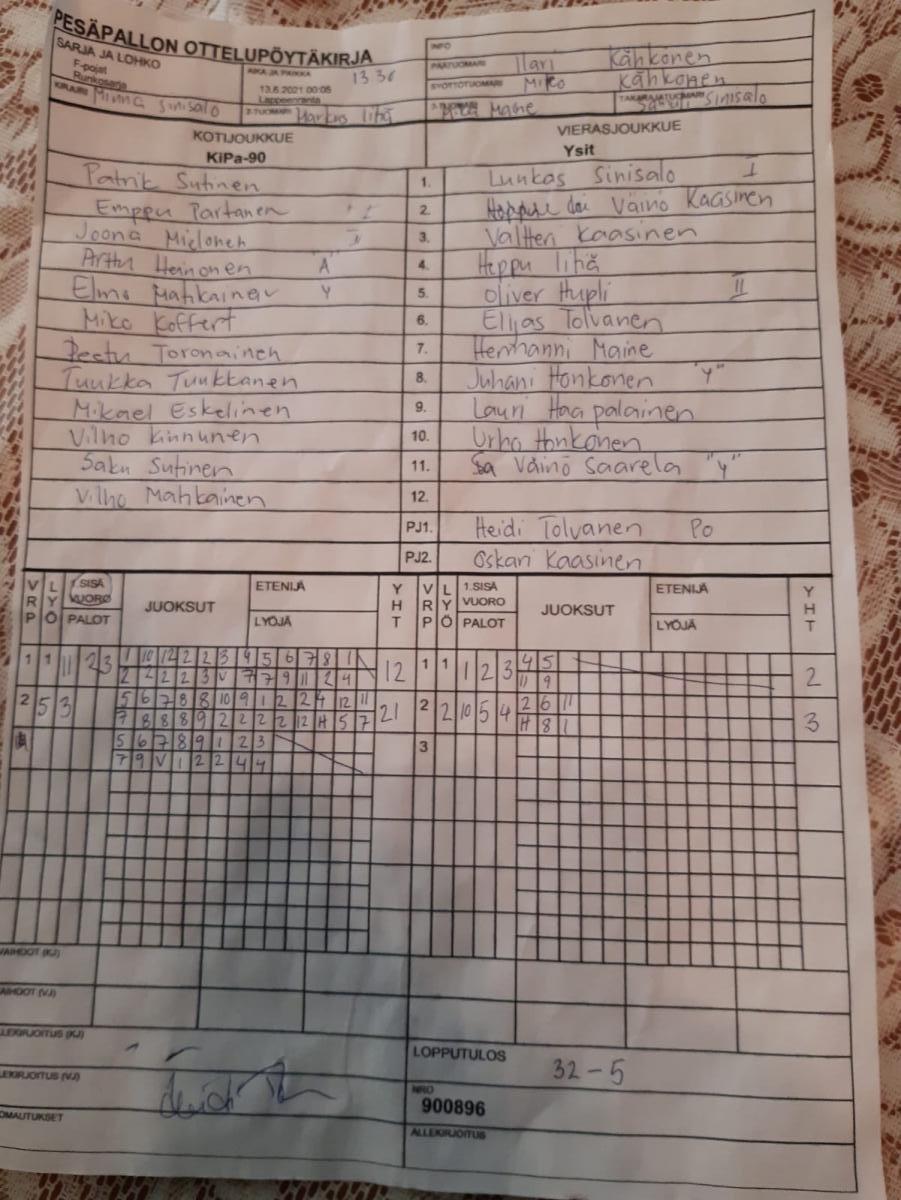 PESÄPALLON OTTELUPÖYTÄKIRJA
SARJA JA LOHKO
F-pojat
Runkosarja
AIKA JA PAIKKA 13 30
13.6.2021 00:05
Lappeenranta
INFO
PÄÄTUOMARI Ilari Kähkönen
SYÖTTÖTUOMARI Miko Kähkönen
KIRJURI Minna Sinisalo
2-TUOMARI Markus Iihä
3-TUOMARI Mika Maine
TAKARAJATUOMARI Sinisalo
KOTIJOUKKUE
KiPa-90
VIERASJOUKKUE
Ysit
Patrik Sutinen 1. Luukas Sinisalo I
Emppu Partanen I 2. Väinö Kaasinen
Joona Mielonen 3. Valtteri Kaasinen
Arttu Heinonen "A" 4. Heppu Iihä
Elmo Mahkainen Y 5. Oliver Hupli II
Miko Koffert 6. Elias Tolvanen
Peetu Toronainen 7. Hermanni Maine
Tuukka Tuukkanen 8. Juhani Honkonen "Y"
Mikael Eskelinen 9. Lauri Haapalainen
Vilho Kinnunen 10. Urho Honkonen
Saku Sutinen 11. Väinö Saarela "Y"
Vilho Mahkainen 12.
PJ1. Heidi Tolvanen Po
PJ2. Oskari Kaasinen
VRP LYÖ 1.SISÄ VUORO PALOT JUOKSUT ETENIJÄ LYÖJÄ YHT VRP LYÖ 1.SISÄ VUORO PALOT JUOKSUT ETENIJÄ LYÖJÄ YHT
1 1 11 2 3 1 10 12 2 2 3 4 5 6 7 8 1 12 1 1 1 2 3 4 5 2
2 2 2 2 3 V 7 7 9 11 2 4 11 9
2 5 3 5 6 7 8 8 10 9 1 2 2 4 12 11 21 2 2 10 5 4 2 6 11 3
7 8 8 8 9 2 2 2 2 12 H 5 7 H 8 1
5 6 7 8 9 1 2 3 3
7 9 V 1 2 2 4 4
VAIHDOT (KJ)
VAIHDOT (VJ)
ALLEKIRJOITUS (KJ)
LOPPUTULOS 32-5
ALLEKIRJOITUS (VJ)
NRO
900896
HUOMAUTUKSET
ALLEKIRJOITUS